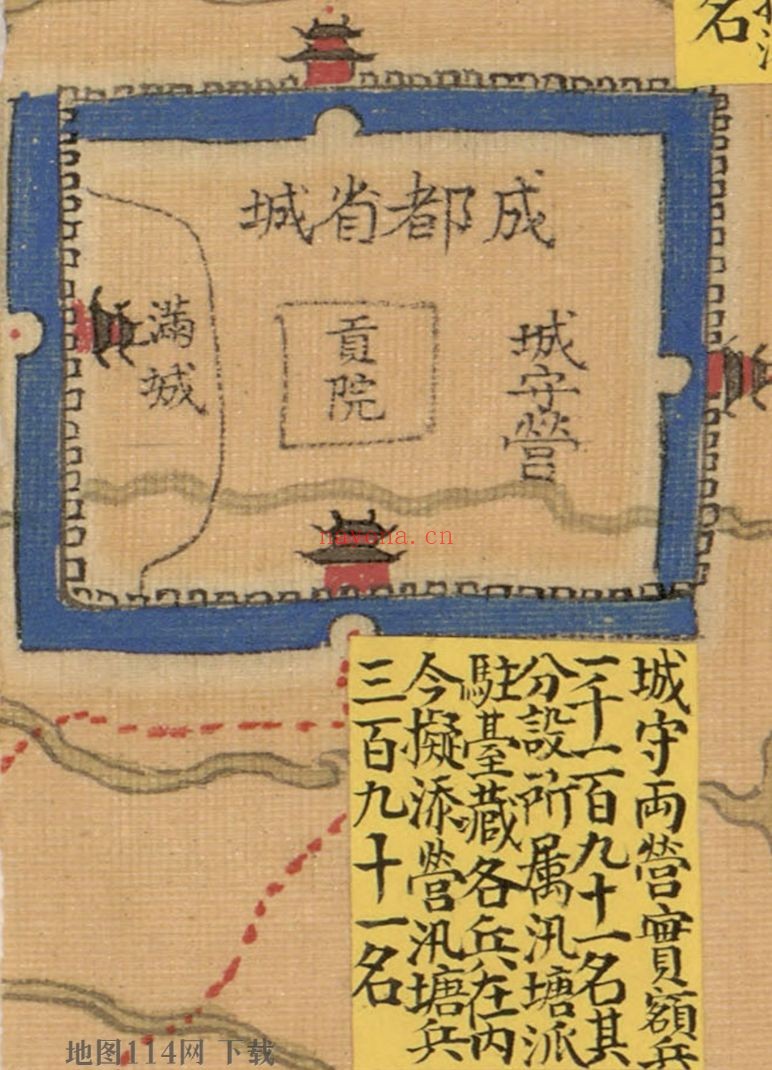 名
成都省城
城守營
貢院
滿城
城守両營實額兵
一千一百九十一名其
分設所属汛塘派
駐臺藏各兵在内
今擬添營汛塘兵
三百九十一名
地图114网 下载